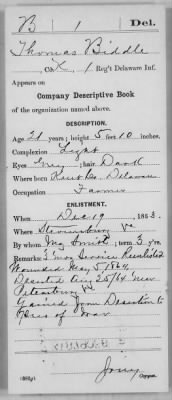 B | 1 | Del.
Thomas Biddle
, Co. K, 1 Reg't Delaware Inf.
Appears on
Company Descriptive Book
of the organization named above.
DESCRIPTION.
Age 21 years; height 5 feet 10 inches.
Complexion Light
Eyes Grey; hair Dark
Where born Kent Co. Delaware
Occupation Farmer
ENLISTMENT.
When Dec 19, 1863.
Where Stevensburg Va
By whom Smith; term 3 yrs.
Remarks: Reenlisted
Wounded May 5/1864
Deserted Aug 25/64 near
Petersburg Va
Gained from Desertion to
Pris of War
Copyist.